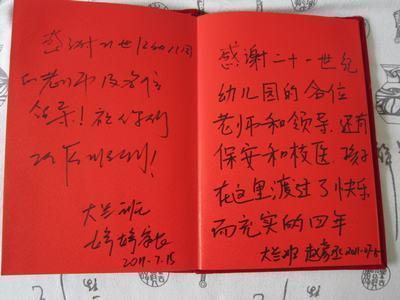 感谢21世纪幼儿园
老师及各位
领导!祝你们
工作顺利!
大兰班
婷婷家长
2011.7.15
感谢二十一世纪
幼儿园的各位
老师和领导,还有
保安和校医.孩子
在这里渡过了快乐
而充实的四年
大兰班 赵